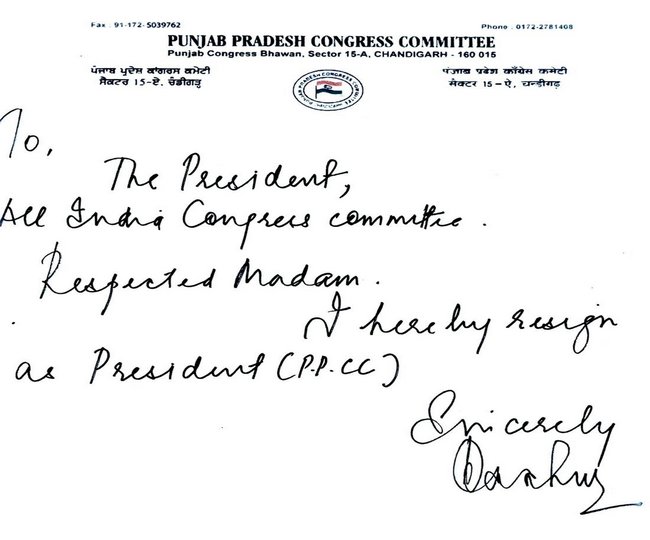 Fax : 91-172- 5039762
Phone : 0172-2781408
PUNJAB PRADESH CONGRESS COMMITTEE
Punjab Congress Bhawan, Sector 15-A, CHANDIGARH - 160 015
ਪੰਜਾਬ ਪ੍ਰਦੇਸ਼ ਕਾਂਗਰਸ ਕਮੇਟੀ
पंजाब प्रदेश काँग्रेस कमेटी
ਸੈਕਟਰ 15-ਏ, ਚੰਡੀਗੜ੍ਹ
सेक्टर 15-ऐ, चन्डीगढ़
PUNJAB PRADESH CONGRESS COMMITTEE
To,
The President,
All India Congress committee.
Respected Madam.
I hereby resign
as President (P.P.CC)
Sincerely